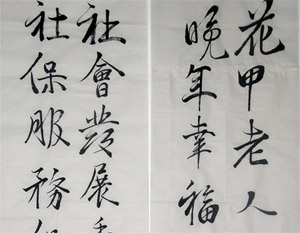 花甲老人
晚年幸福
社會發展
社保服務